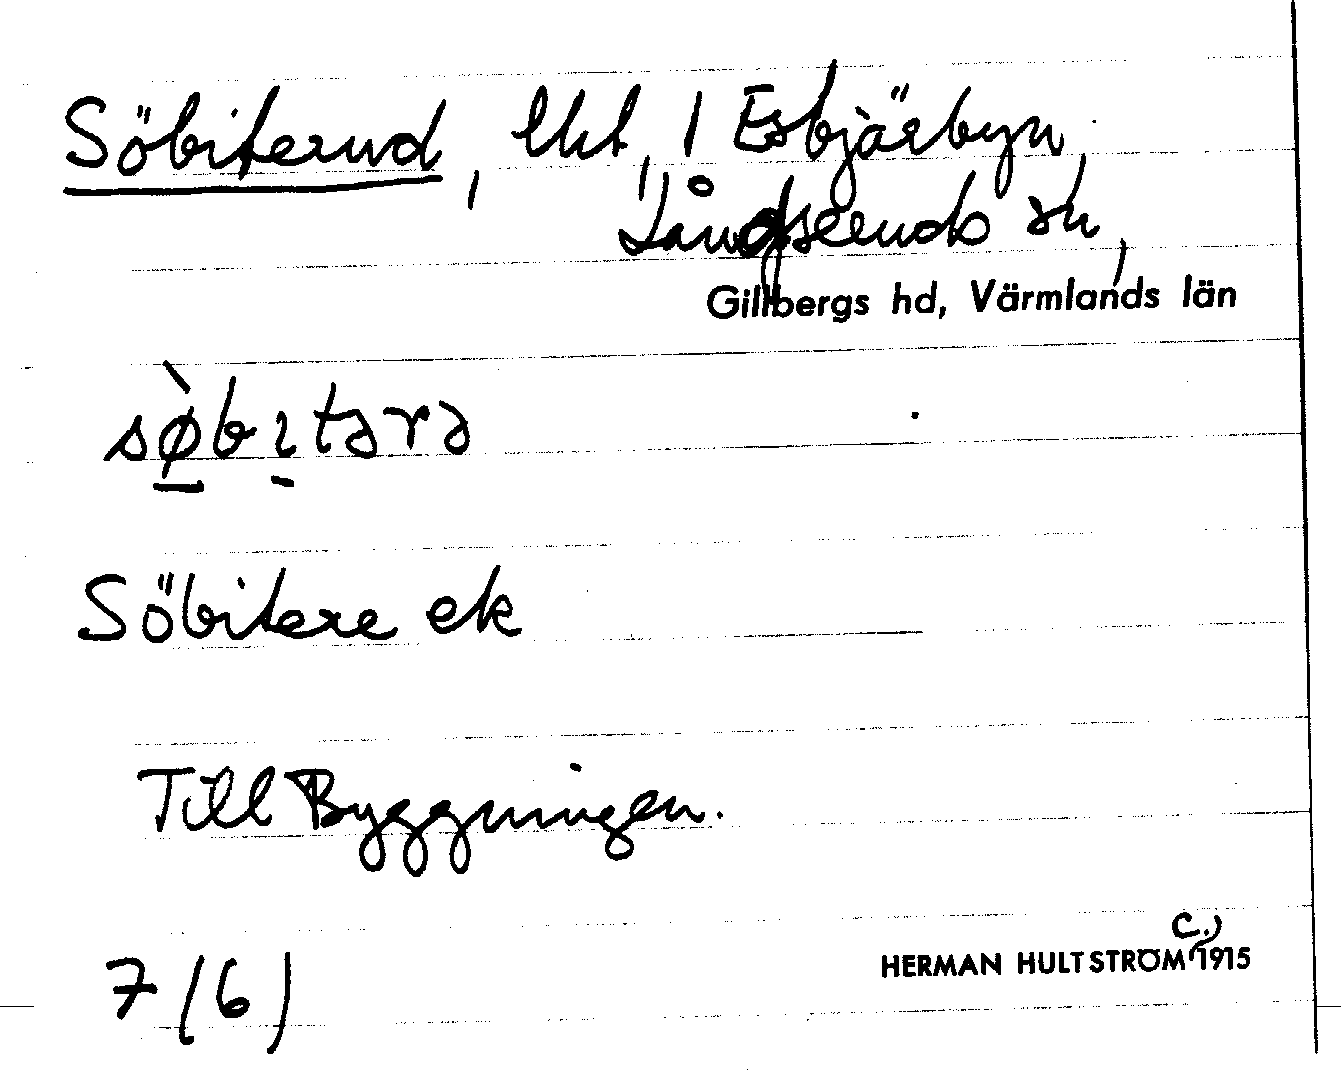 Söbiterud, lht, 1 Esbjärbyn,
Långseruds sn,
Gillbergs hd, Värmlands län
sø̀bıtərə
Söbitere ek
Till Byggningen.
7 (6)
HERMAN HULTSTRÖM c., 1915